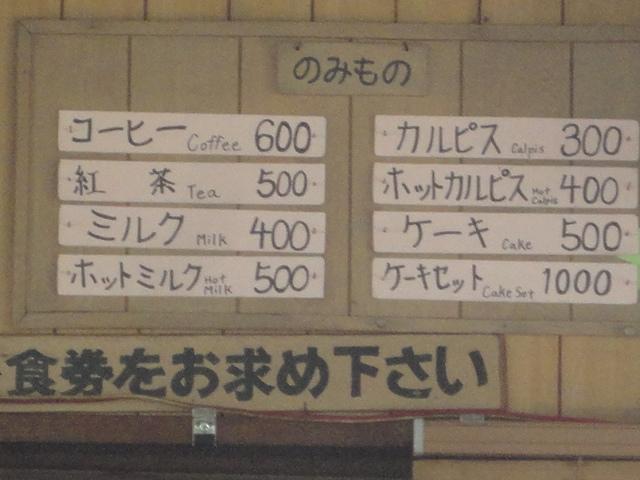 のみもの
コーヒー Coffee 600
紅茶 Tea 500
ミルク Milk 400
ホットミルク Hot Milk 500
カルピス Calpis 300
ホットカルピス Hot Calpis 400
ケーキ Cake 500
ケーキセット Cake Set 1000
食券をお求め下さい